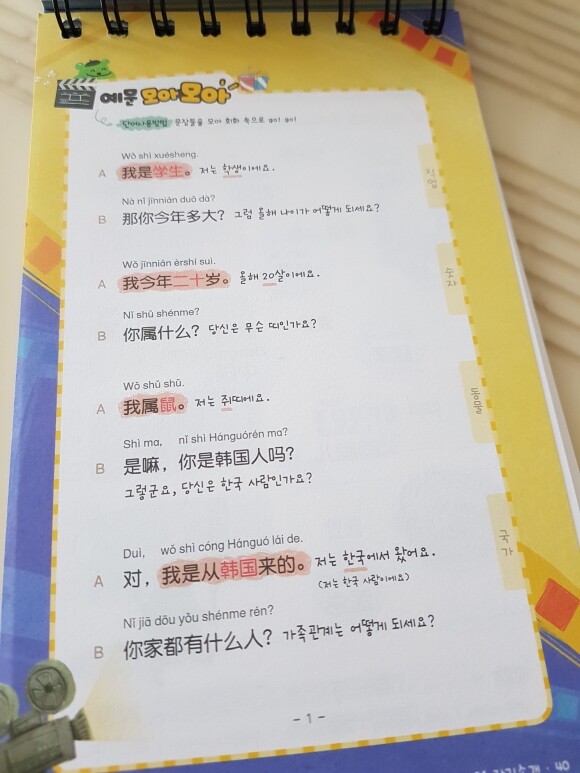 예문 모아모아
단어사용방법 문장들을 모아 회화 속으로 go! go!
Wǒ shì xuésheng.
A 我是学生。 저는 학생이에요.
Nà nǐ jīnnián duō dà?
B 那你今年多大? 그럼 올해 나이가 어떻게 되세요?
Wǒ jīnnián èrshí suì.
A 我今年二十岁。 올해 20살이에요.
Nǐ shǔ shénme?
B 你属什么? 당신은 무슨 띠인가요?
Wǒ shǔ shǔ.
A 我属鼠。 저는 쥐띠에요.
Shì ma, nǐ shì Hánguórén ma?
B 是嘛，你是韩国人吗?
그렇군요, 당신은 한국 사람인가요?
Duì, wǒ shì cóng Hánguó lái de.
A 对，我是从韩国来的。 저는 한국에서 왔어요.
(저는 한국 사람이에요)
Nǐ jiā dōu yǒu shénme rén?
B 你家都有什么人? 가족관계는 어떻게 되세요?
직업
숫자
동물
국가
- 1 -
자기소개 · 40